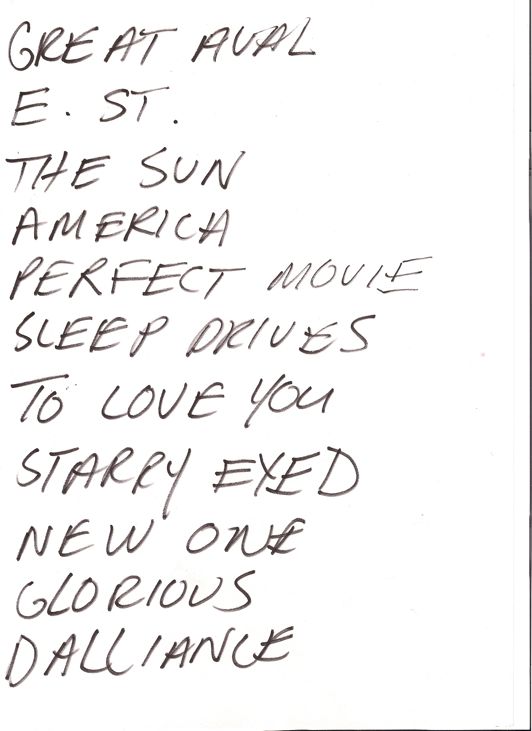 GREAT AVAL
E. ST.
THE SUN
AMERICA
PERFECT MOVIE
SLEEP DRIVES
TO LOVE YOU
STARRY EYED
NEW ONE
GLORIOUS
DALLIANCE